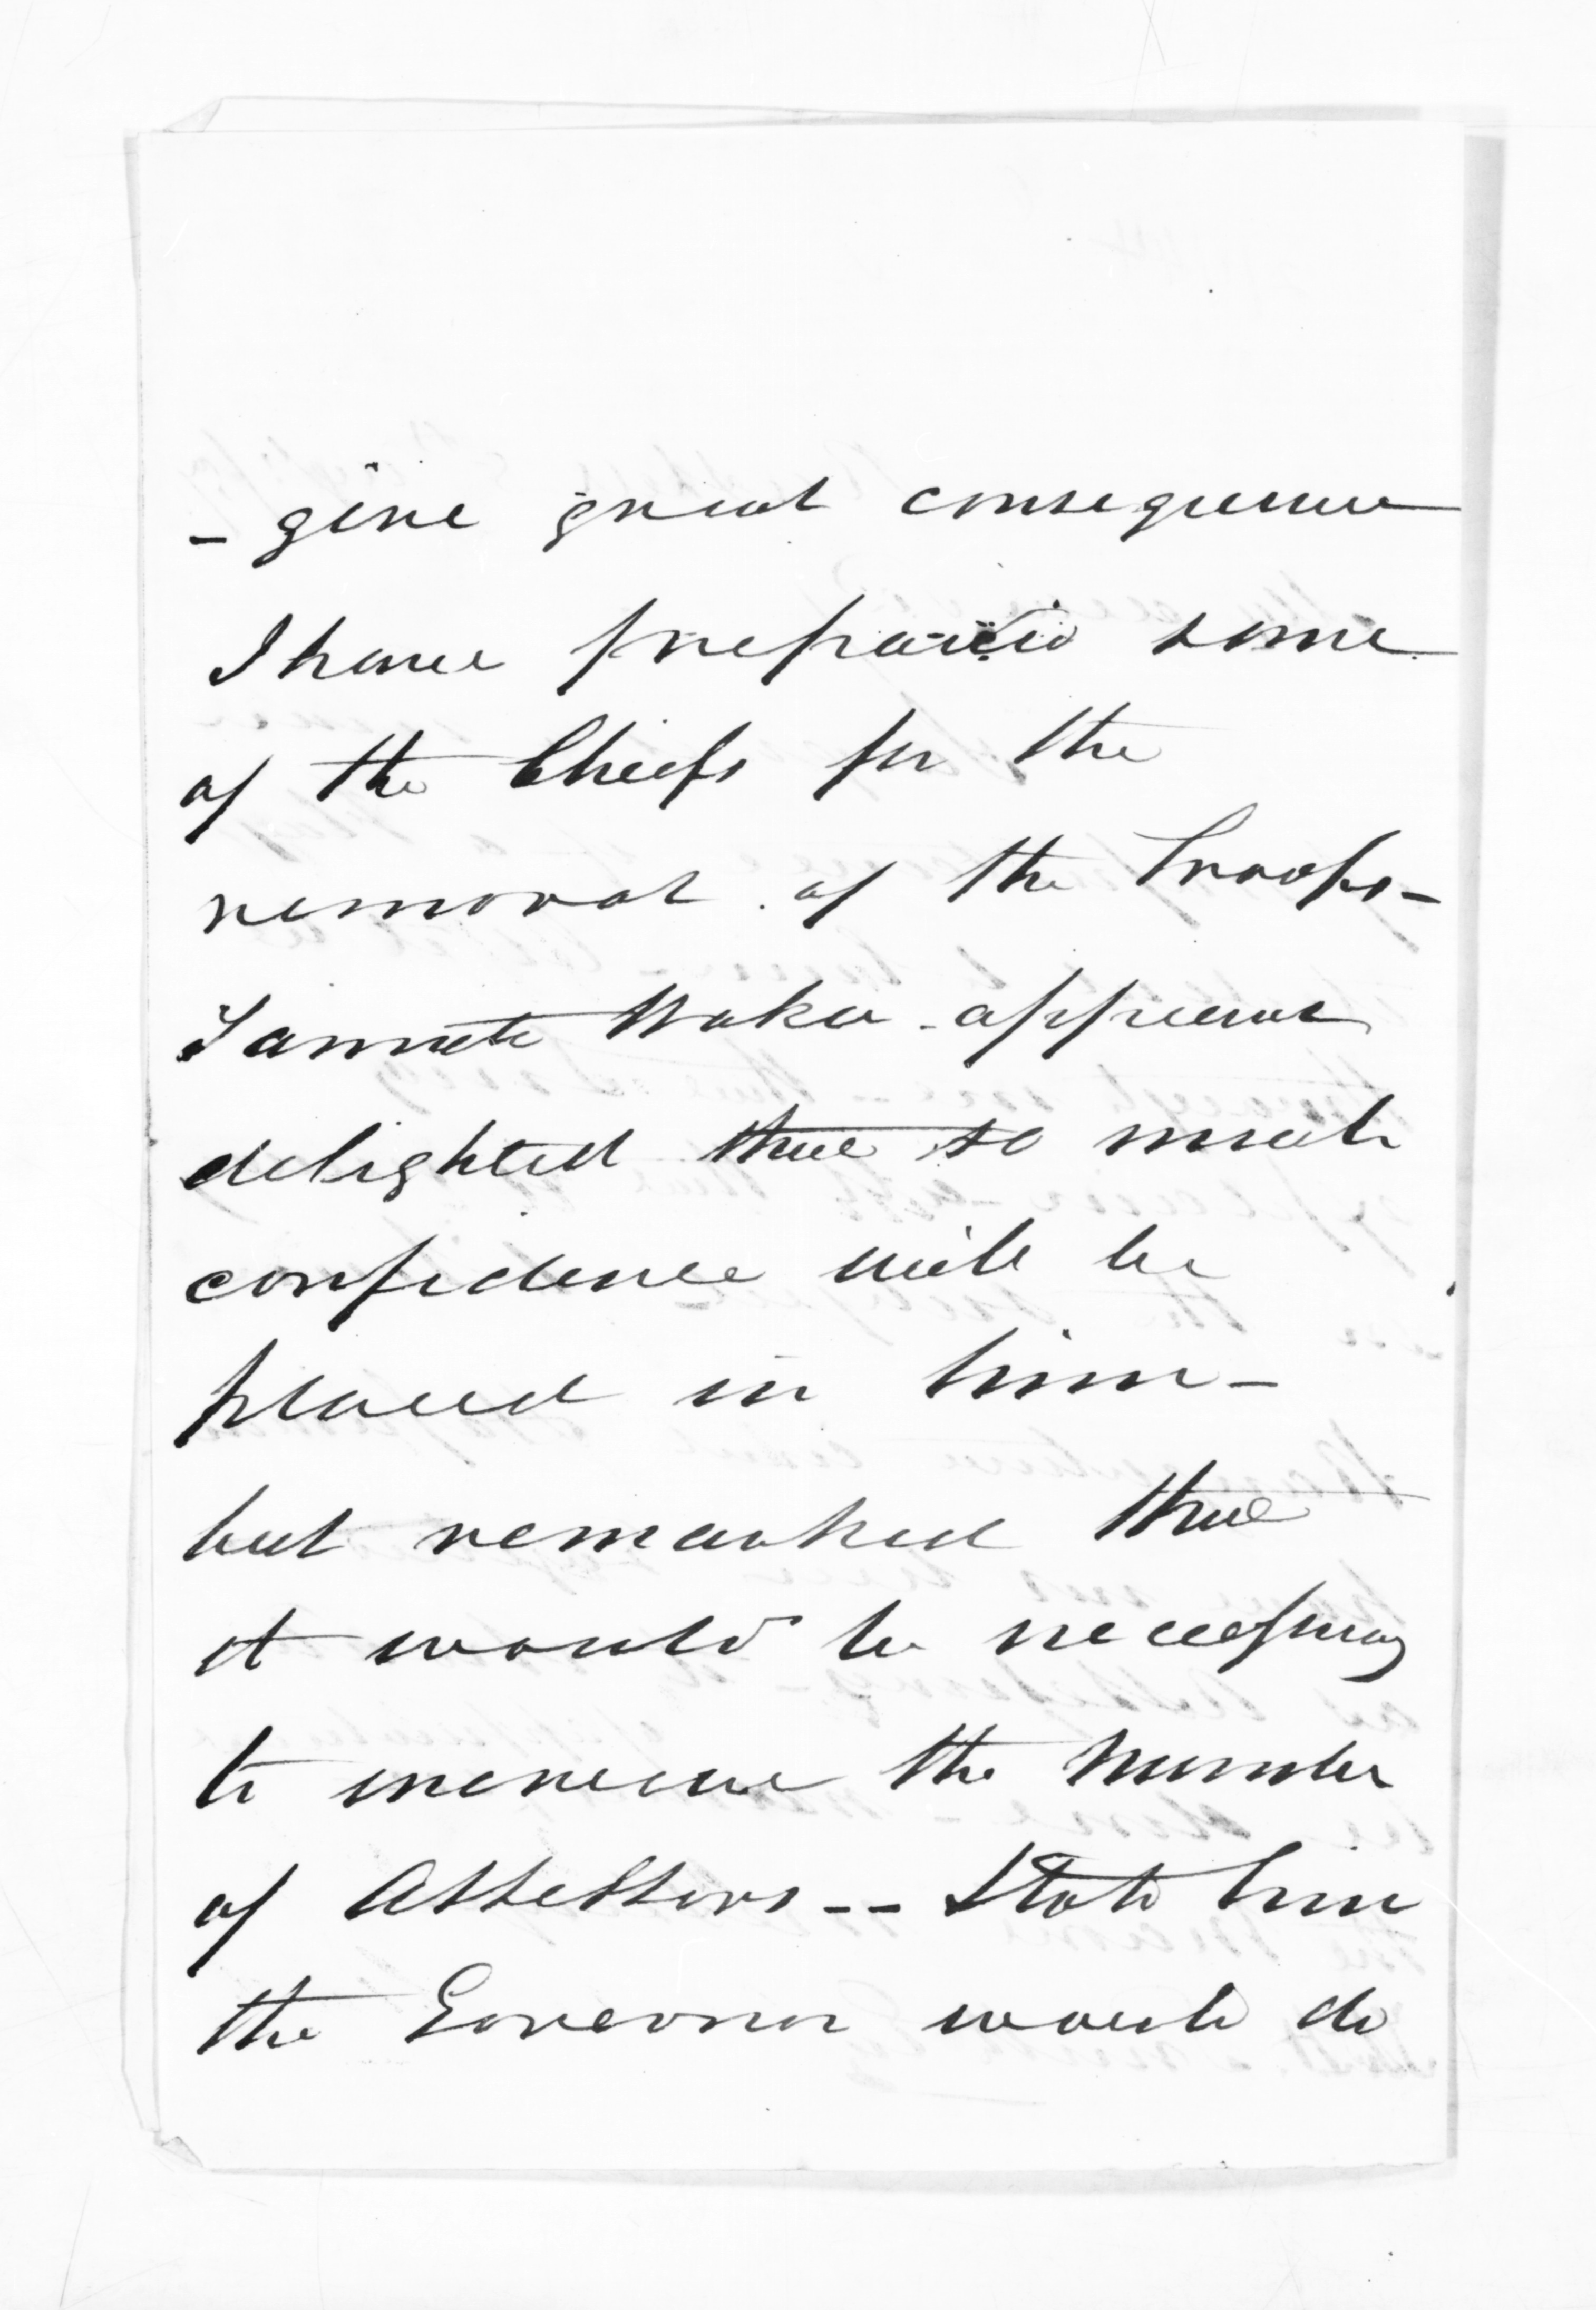 - give great consequence
I have prepared some
of the Chiefs for the
removal of the Troops -
Tamete Waka appears
delighted that so much
confidence will be
placed in him -
but remarked that
it would be necessary
to increase the number
of Assessors -- I told him
the Governor would do